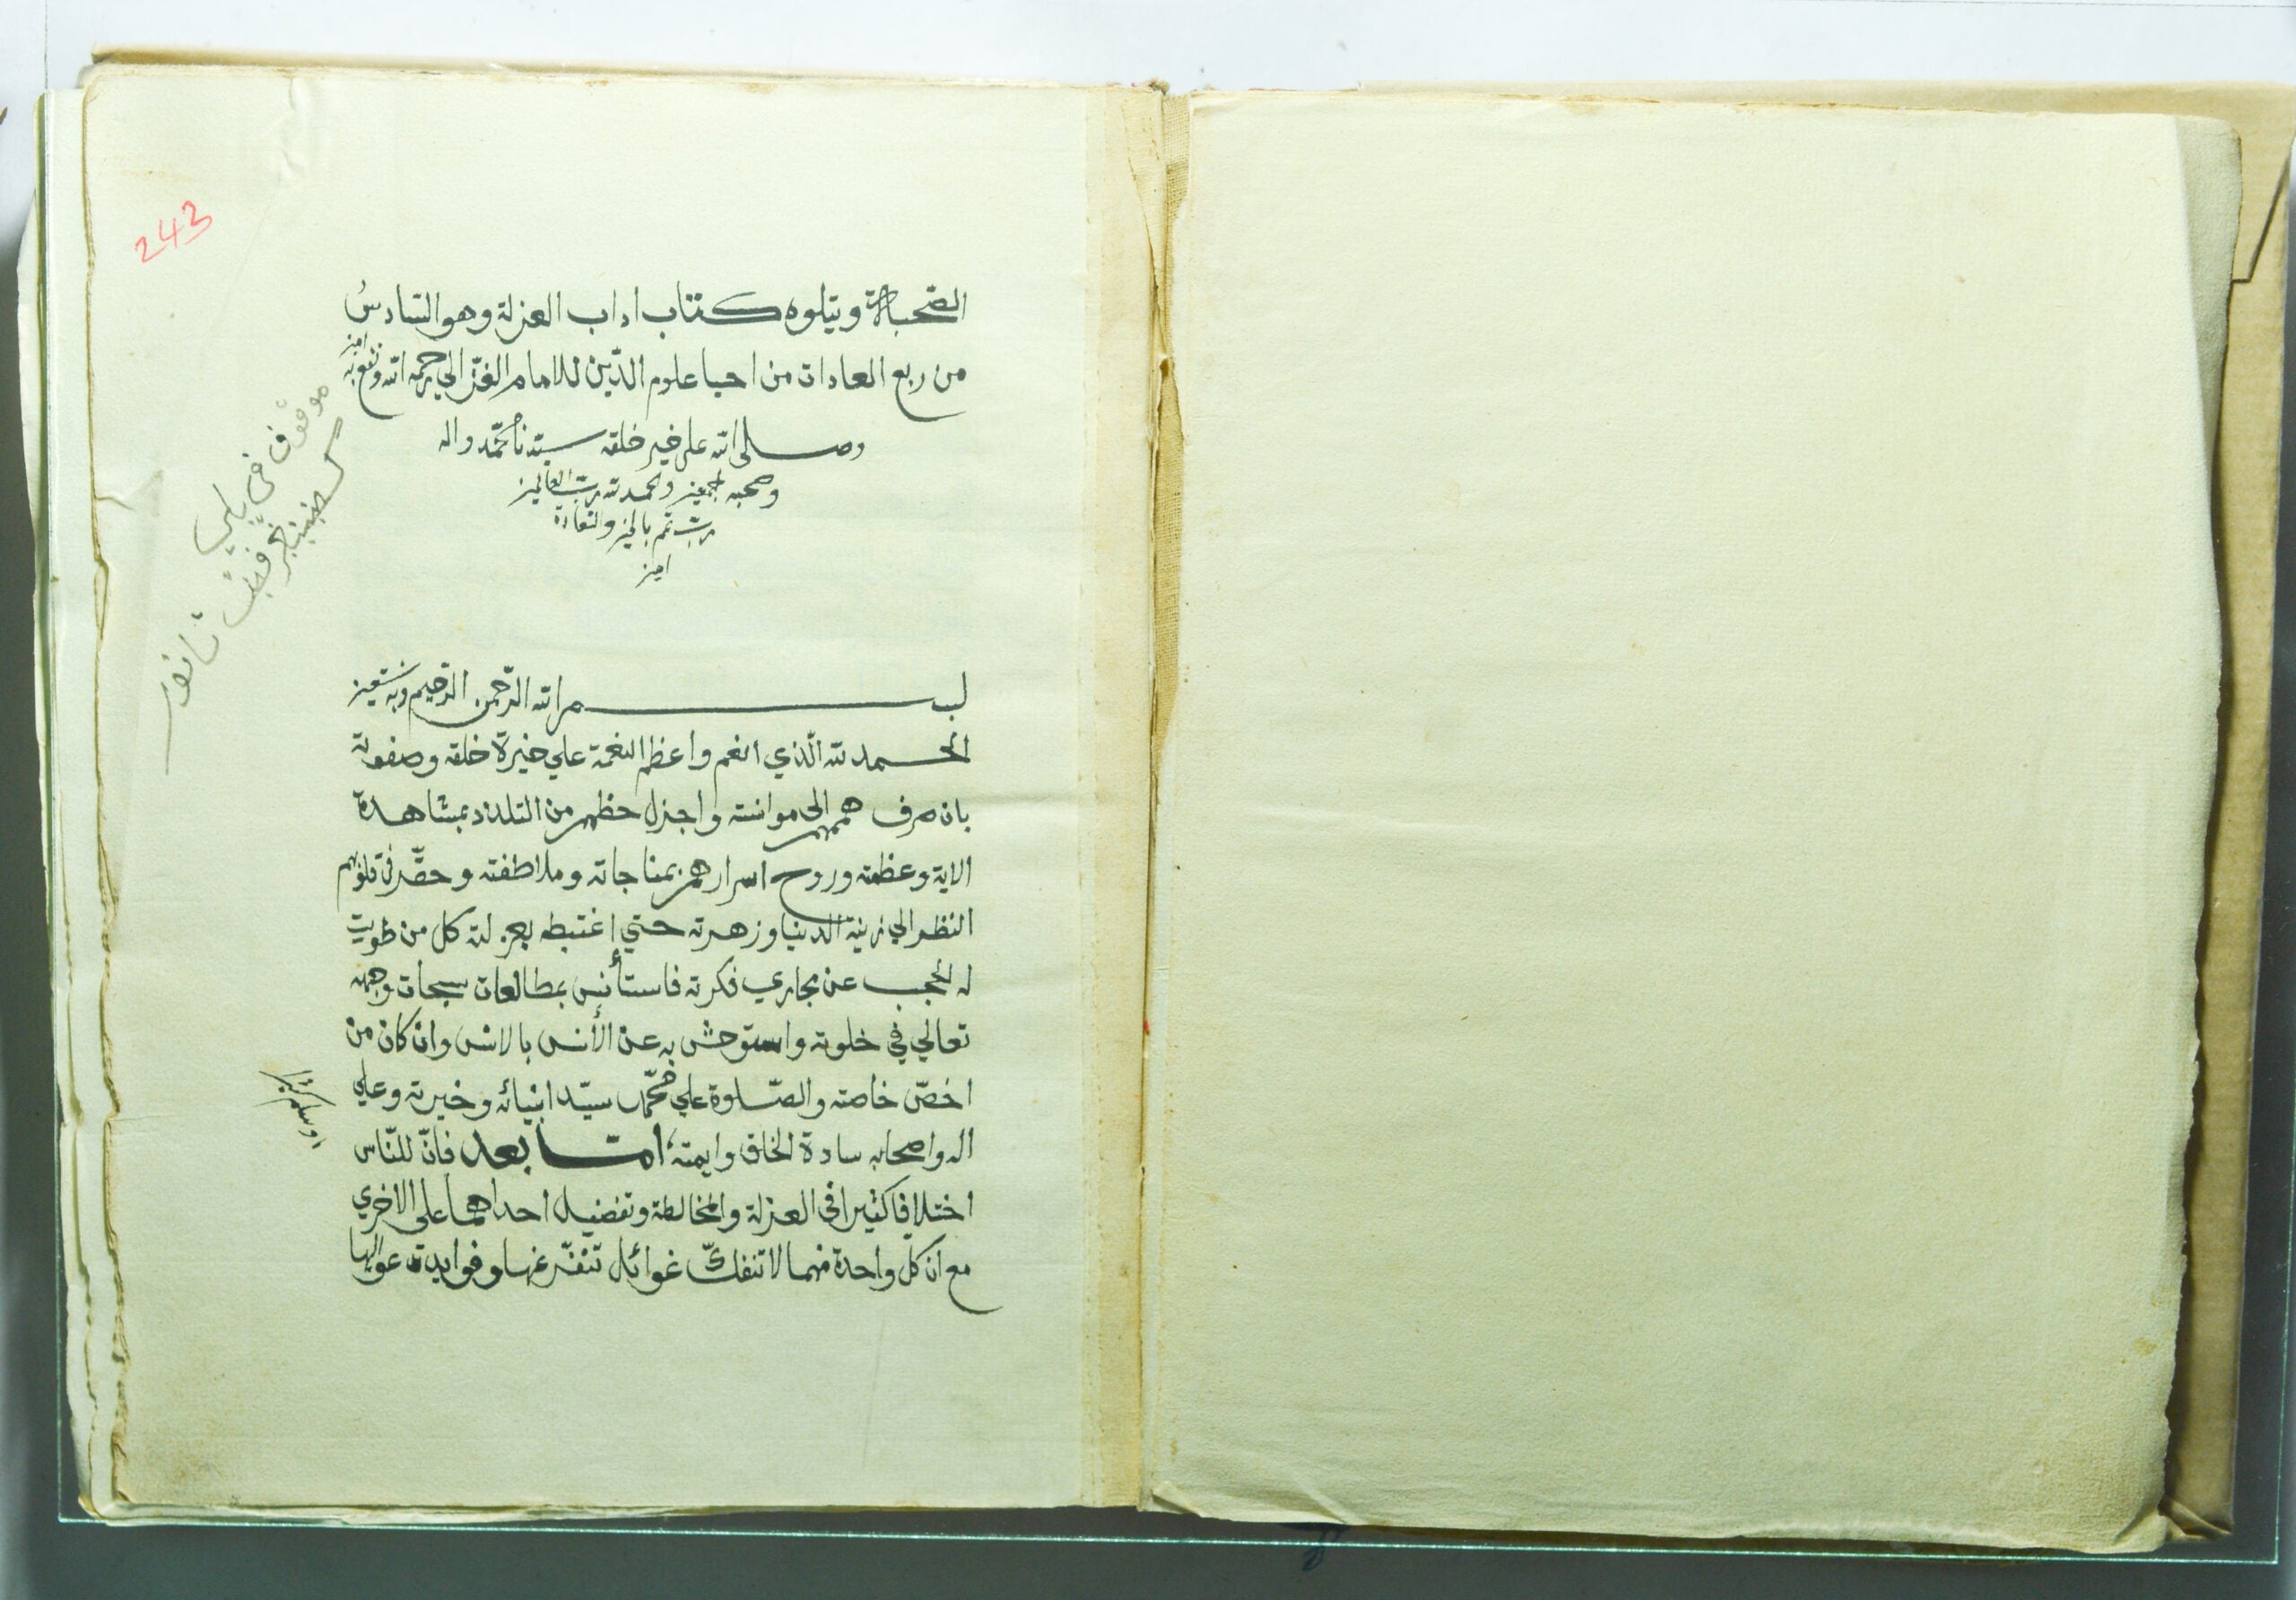 243
الصّحبة ويتلوه كتاب اداب العزلة وهو السّادسُ
من ربع العادات من احيا علوم الدّين للامام الغزّالي رحمه الله ونفع به امين
وصلى الله على خير خلقه سيّدنا محمّد واله
وصحبه اجمعين والحمد لله ربّ العالمين
ربّ تمم بالخير والسّعادة
امين
موقوف في
بسم الله الرّحمن الرّحيم وبه نستعين
الحمد لله الّذي انعم واعظم النعمة علي خيرة خلقه وصفوته
بان صرف هممهم الى موانسته واجزل حظهم من التلذذ بمشاهدة
الاية وعظمته وروح اسرارهم بمناجاته وملاطفته وحقّر في قلوبهم
النظر الي زينة الدنيا وزهرته حتي إغتبط بعزلته كل من طويت
له الحجب عن مجاري فكرته فاستأنس بمطالعات سبحات وجهه
تعالي في خلوته واستوحش به عن الأنس بالانس وان كان من
اخصّ خاصته والصّلوة علي محمّد سيّد انبيائه وخيرته وعلي
اله واصحابه سادة الخلق وايمته، امّا بعد فانّ للنّاس
اختلافا كثيرا في العزلة والمخالطة وتفضيل احداهما على الاخري
مع ان كل واحدة منهما لا تنفكّ غوائل تنفّر عنها وفوايد